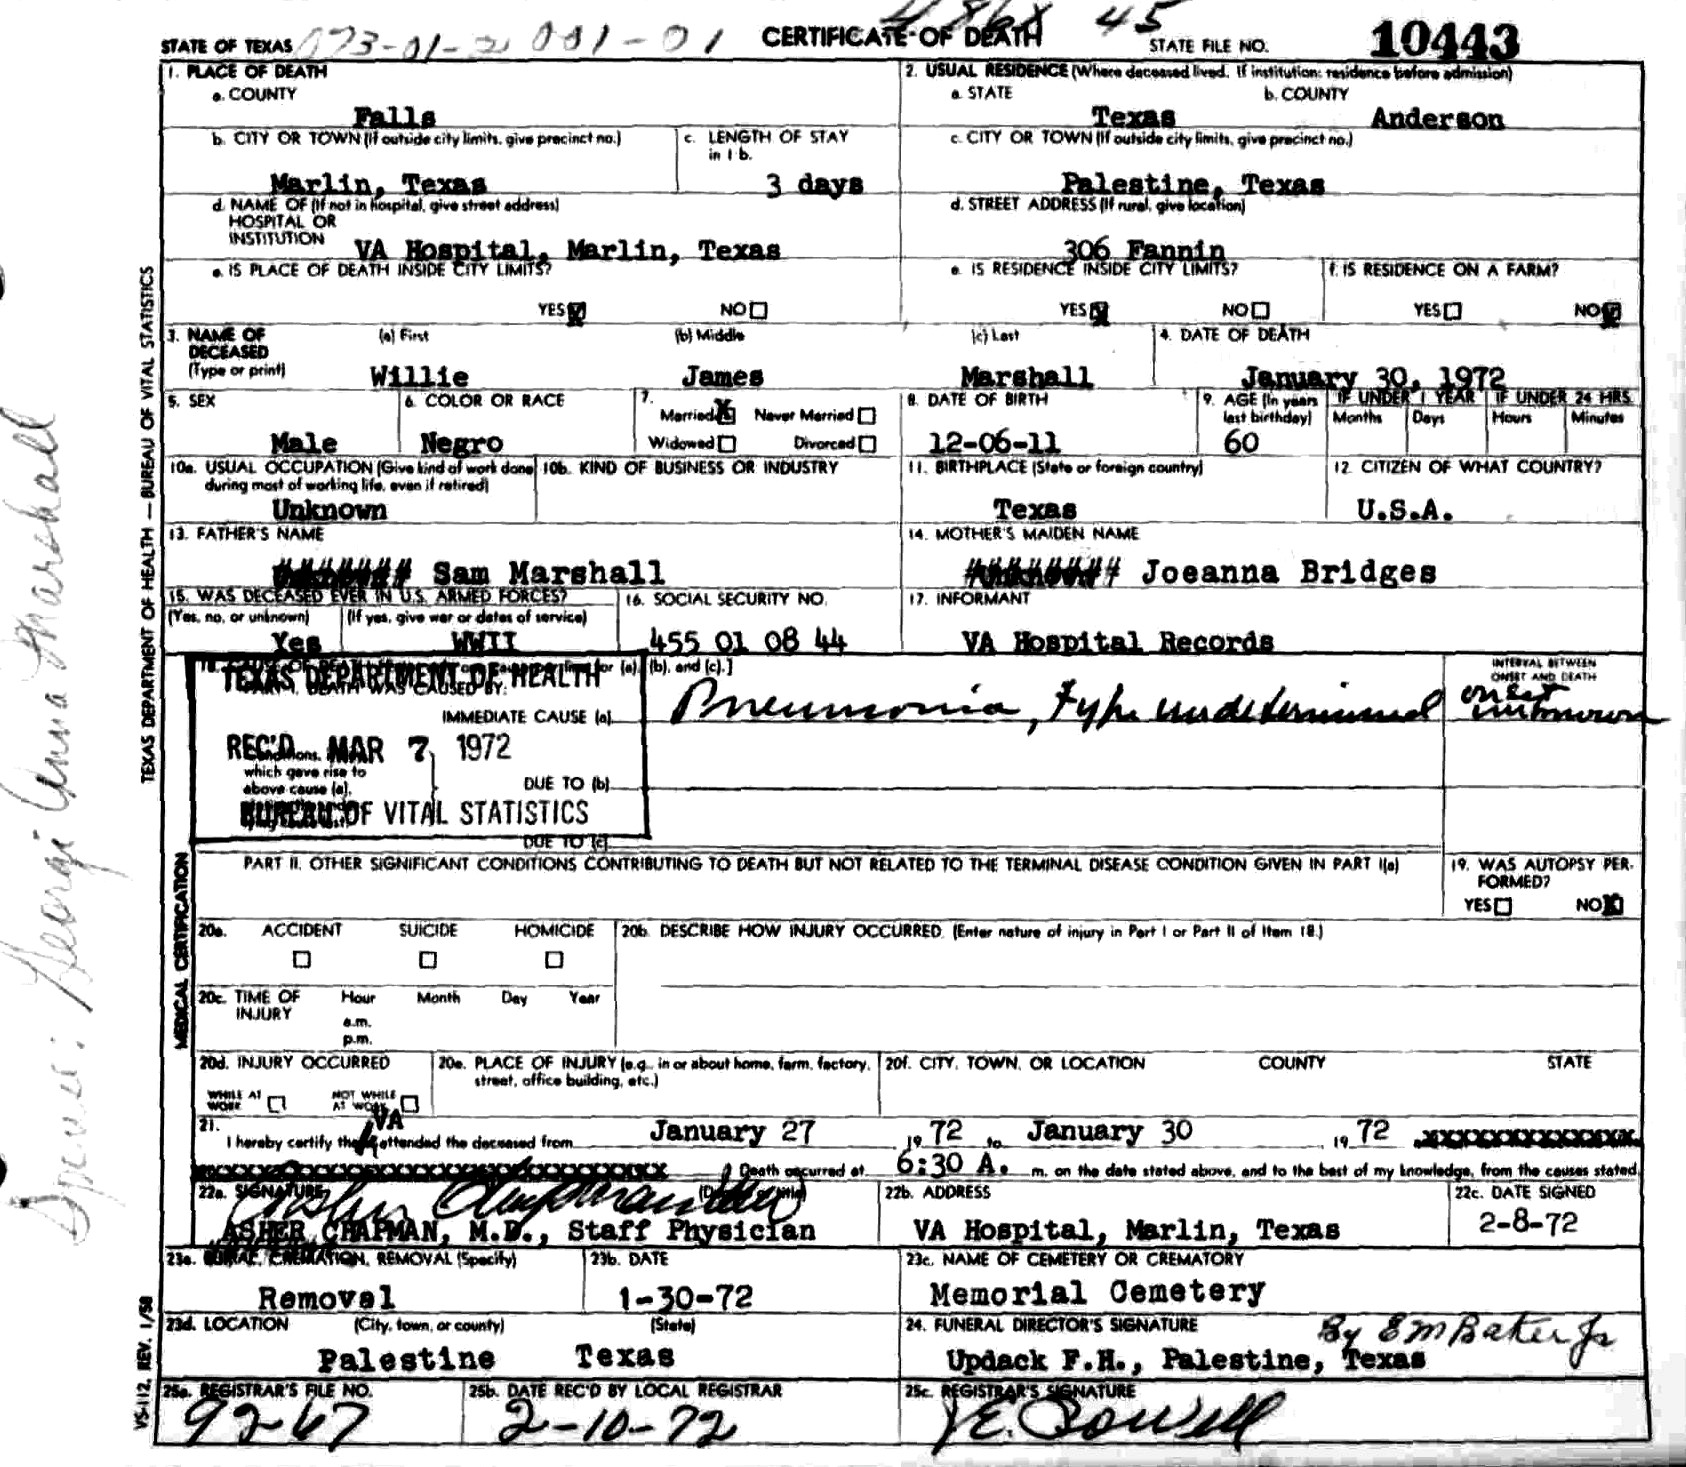 STATE OF TEXAS 073-01-2 001-01 CERTIFICATE OF DEATH 45 STATE FILE NO. 10443
1. PLACE OF DEATH
a. COUNTY
Falls
2. USUAL RESIDENCE (Where deceased lived. If institution: residence before admission)
a. STATE b. COUNTY
Texas Anderson
b. CITY OR TOWN (If outside city limits, give precinct no.) c. LENGTH OF STAY in 1 b.
Marlin, Texas 3 days
c. CITY OR TOWN (If outside city limits, give precinct no.)
Palestine, Texas
d. NAME OF (If not in hospital, give street address)
HOSPITAL OR
INSTITUTION VA Hospital, Marlin, Texas
d. STREET ADDRESS (If rural, give location)
306 Fannin
e. IS PLACE OF DEATH INSIDE CITY LIMITS?
YES NO
e. IS RESIDENCE INSIDE CITY LIMITS?
YES NO
f. IS RESIDENCE ON A FARM?
YES NO
3. NAME OF DECEASED (Type or print)
(a) First (b) Middle (c) Last
Willie James Marshall
4. DATE OF DEATH
January 30, 1972
5. SEX
Male
6. COLOR OR RACE
Negro
7. Married Never Married
Widowed Divorced
8. DATE OF BIRTH
12-06-11
9. AGE (In years last birthday)
60
IF UNDER 1 YEAR IF UNDER 24 HRS.
Months Days Hours Minutes
10a. USUAL OCCUPATION (Give kind of work done during most of working life, even if retired)
Unknown
10b. KIND OF BUSINESS OR INDUSTRY
11. BIRTHPLACE (State or foreign country)
Texas
12. CITIZEN OF WHAT COUNTRY?
U.S.A.
13. FATHER'S NAME
Sam Marshall
14. MOTHER'S MAIDEN NAME
Joeanna Bridges
15. WAS DECEASED EVER IN U.S. ARMED FORCES?
(Yes, no, or unknown) (If yes, give war or dates of service)
Yes WWII
16. SOCIAL SECURITY NO.
455 01 08 44
17. INFORMANT
VA Hospital Records
18. CAUSE OF DEATH for (a), (b), and (c).]
TEXAS DEPARTMENT OF HEALTH
PART I. DEATH WAS CAUSED BY:
INTERVAL BETWEEN
ONSET AND DEATH
IMMEDIATE CAUSE (a) Pneumonia, Type undetermined onset unknown
REC'D MAR 7 1972
which gave rise to
above cause (a),
DUE TO (b)
BUREAU OF VITAL STATISTICS
DUE TO (c)
PART II. OTHER SIGNIFICANT CONDITIONS CONTRIBUTING TO DEATH BUT NOT RELATED TO THE TERMINAL DISEASE CONDITION GIVEN IN PART I(a)
19. WAS AUTOPSY PERFORMED?
YES NO
20a. ACCIDENT SUICIDE HOMICIDE
20b. DESCRIBE HOW INJURY OCCURRED. (Enter nature of injury in Part I or Part II of Item 18.)
20c. TIME OF INJURY
Hour Month Day Year
a.m.
p.m.
20d. INJURY OCCURRED
WHILE AT WORK NOT WHILE AT WORK
20e. PLACE OF INJURY (e.g., in or about home, farm, factory, street, office building, etc.)
20f. CITY, TOWN, OR LOCATION COUNTY STATE
21. VA
I hereby certify that attended the deceased from January 27 19 72 to January 30 19 72 xxxxxxxxxxxxxxx
xxxxxxxxxxxxxxxxxxxxxxxxxxxxxxx Death occurred at 6:30 A. m. on the date stated above, and to the best of my knowledge, from the causes stated.
22a. SIGNATURE (Degree or title)
ASHER CHAPMAN, M.D., Staff Physician
22b. ADDRESS
VA Hospital, Marlin, Texas
22c. DATE SIGNED
2-8-72
23a. BURIAL, CREMATION, REMOVAL (Specify)
Removal
23b. DATE
1-30-72
23c. NAME OF CEMETERY OR CREMATORY
Memorial Cemetery
23d. LOCATION (City, town, or county) (State)
Palestine Texas
24. FUNERAL DIRECTOR'S SIGNATURE By E M Baker Jr
Updack F.H., Palestine, Texas
25a. REGISTRAR'S FILE NO.
92-67
25b. DATE REC'D BY LOCAL REGISTRAR
2-10-72
25c. REGISTRAR'S SIGNATURE
J E. Powell
TEXAS DEPARTMENT OF HEALTH — BUREAU OF VITAL STATISTICS
MEDICAL CERTIFICATION
VS-112, REV. 1/58
Spouse: Georgi Anna Marshall